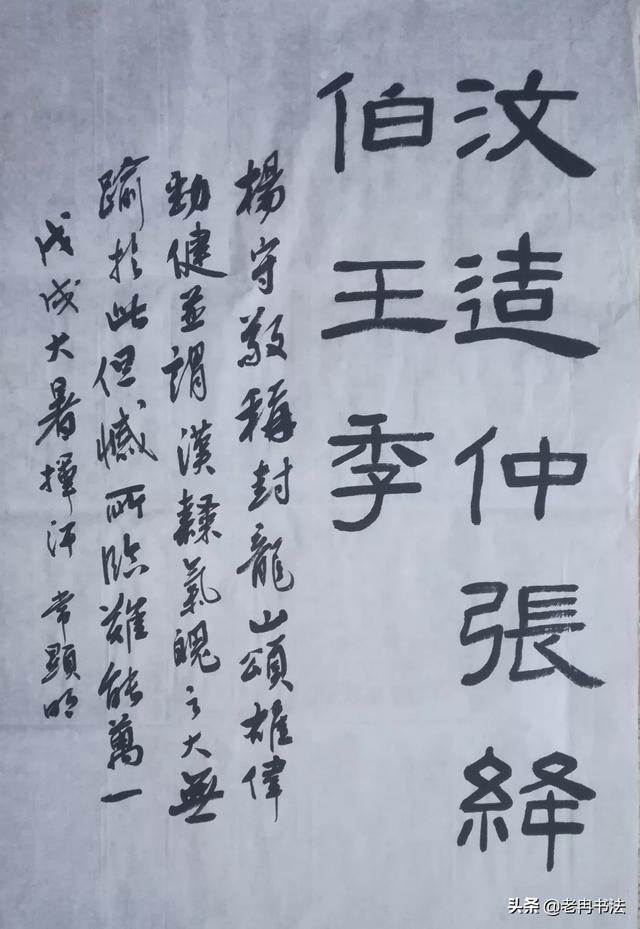 汶造仲張绛
伯王季
楊守敬稱封龍山頌雄偉
勁健並謂漢隸氣魄之大無
踰於此但憾所臨難能萬一
戊戌大暑揮汗 常顯明
头条 @老冉书法